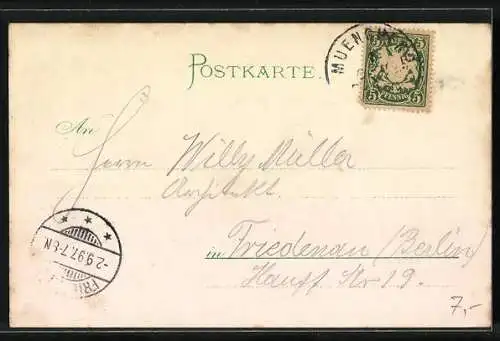 MUENCHEN
POSTKARTE.
5 PFENNIG 5
An
Herrn Willy Müller
Architekt
in Friedenau (Berlin)
Hauff Str 19.
-2.9.97.7-8N
FRI
7,-